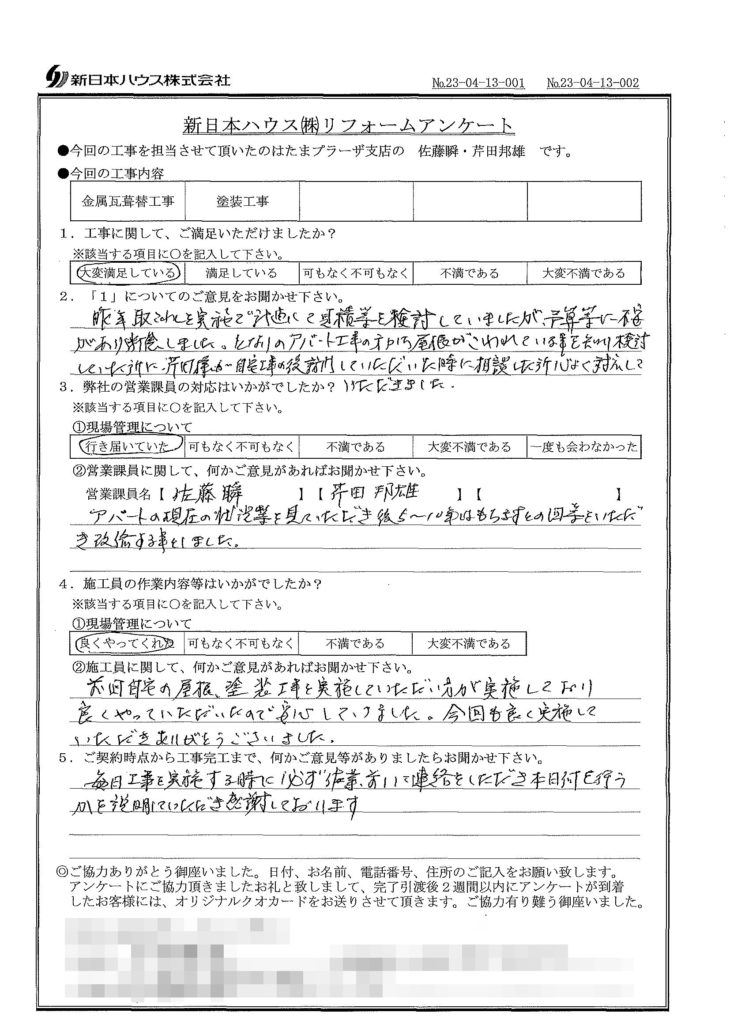 新日本ハウス株式会社
№23-04-13-001 №23-04-13-002
新日本ハウス㈱リフォームアンケート
●今回の工事を担当させて頂いたのはたまプラーザ支店の 佐藤瞬・芹田邦雄 です。
●今回の工事内容
金属瓦葺替工事 塗装工事
1．工事に関して、ご満足いただけましたか？
※該当する項目に○を記入して下さい。
大変満足している 満足している 可もなく不可もなく 不満である 大変不満である
2．「1」についてのご意見をお聞かせ下さい。
昨年取こわしを実施で計画して見積等を検討していましたが、予算等に不安
があり断念しました。となりのアパート工事の方から屋根がこわれている事を知り検討
していた所に、芹田様が自宅工事の後訪問していただいた時に相談した所心よく対応して
3．弊社の営業課員の対応はいかがでしたか？ いただきました．
※該当する項目に○を記入して下さい。
①現場管理について
行き届いていた 可もなく不可もなく 不満である 大変不満である 一度も会わなかった
②営業課員に関して、何かご意見があればお聞かせ下さい。
営業課員名【 佐藤 瞬 】【 芹田 邦雄 】【 】
アパートの現在の状況等を見ていただき後5〜10年はもちますとの回答をいただ
き改修する事としました。
4．施工員の作業内容等はいかがでしたか？
※該当する項目に○を記入して下さい。
①現場管理について
良くやってくれた 可もなく不可もなく 不満である 大変不満である
②施工員に関して、何かご意見があればお聞かせ下さい。
前回自宅の屋根、塗装工事を実施していただい方が実施しており
良くやっていただいたので安心していました。今回も良く実施して
いただきありがとうございました.
5．ご契約時点から工事完工まで、何かご意見等がありましたらお聞かせ下さい。
毎日工事を実施する時に必ず作業前に連絡をいただき本日何を行う
かを説明していただき感謝しております
◎ご協力ありがとう御座いました。日付、お名前、電話番号、住所のご記入をお願い致します。
アンケートにご協力頂きましたお礼と致しまして、完了引渡後2週間以内にアンケートが到着
したお客様には、オリジナルクオカードをお送りさせて頂きます。ご協力有り難う御座いました。